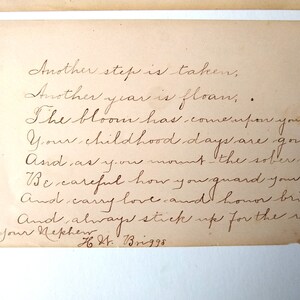 Another step is taken.
Another year is floan.
The bloom has come upon you
Your childhood days are go
And as you mount the sober
Be careful how you guard your
And carry love and honor bri
And always stick up for the r
your Nephew
H. W. Briggs